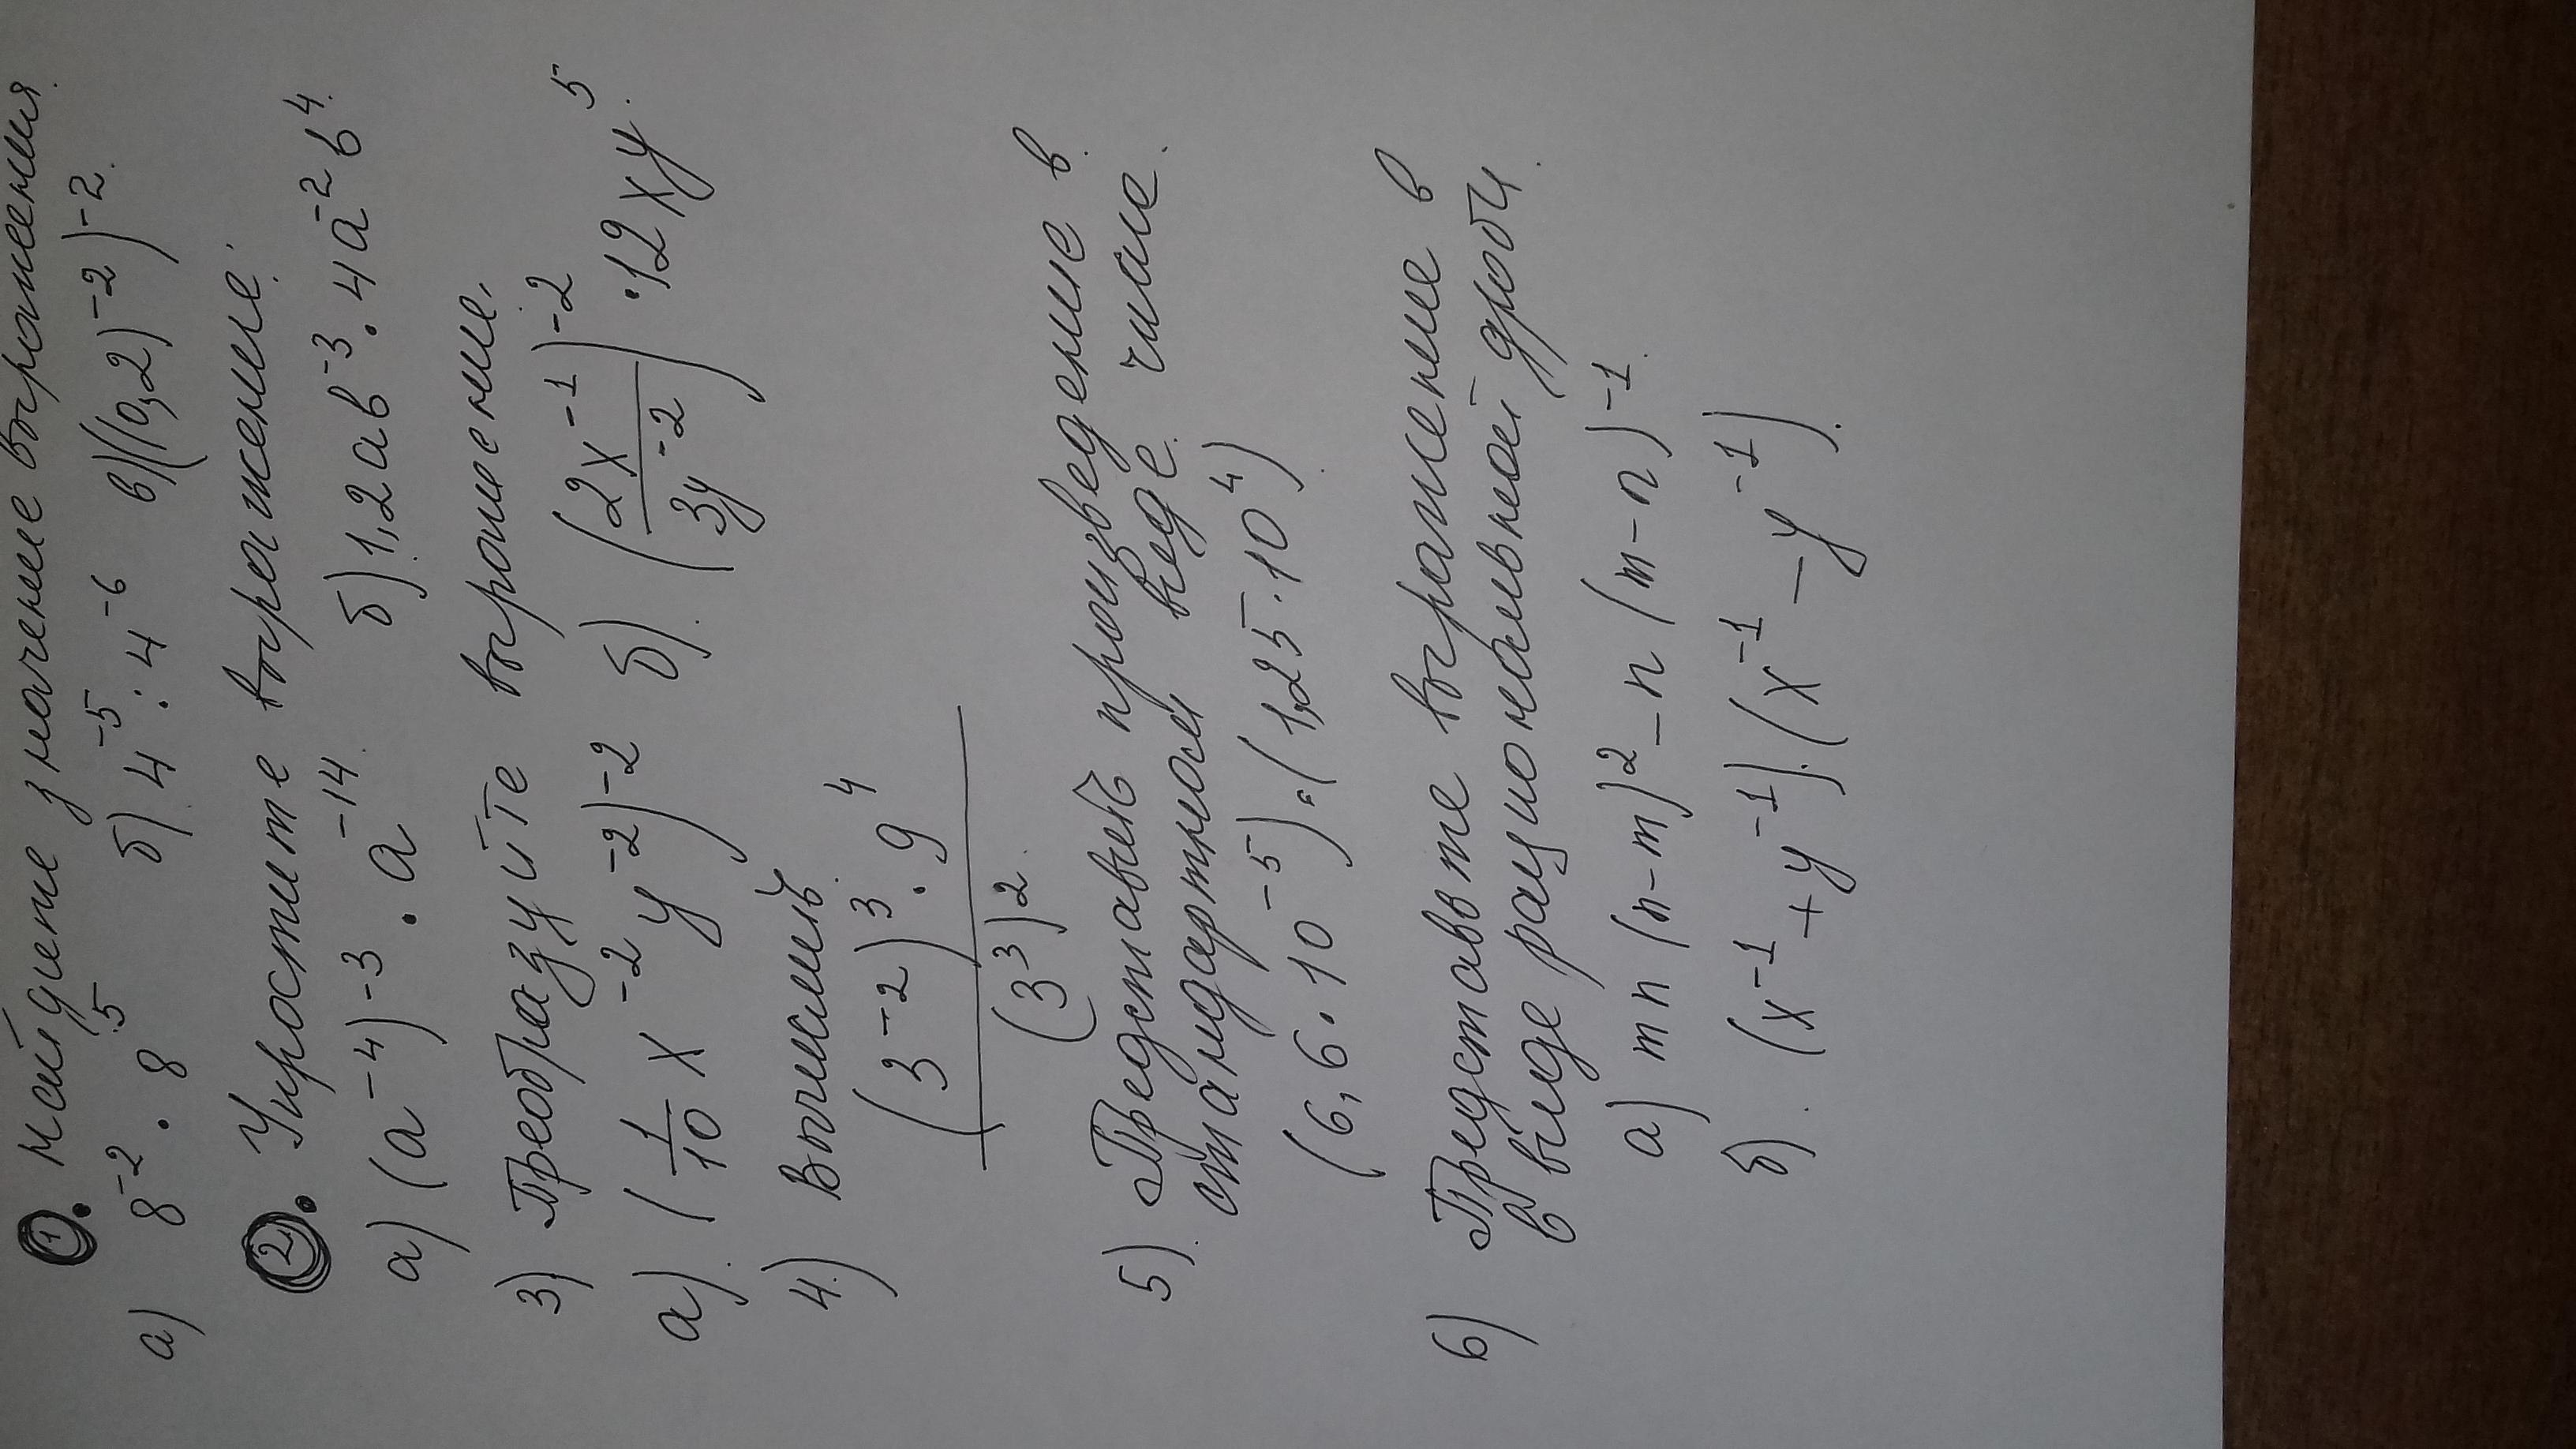 1. Найдите значение выражения.
а) 8⁻² · 8⁵ б) 4⁻⁵ : 4⁻⁶ в) ((0,2)⁻²)⁻².
2. Упростите выражение:
а) (a⁻⁴)⁻³ · a⁻¹⁴. б) 1,2ab⁻³ · 4a⁻²b⁴.
3) Преобразуйте выражение.
а). (1/10 x⁻² y⁻²)⁻² б). (2x⁻¹/3y⁻²)⁻² · 12xy⁵.
4.) Вычислить.
(3⁻²)³ · 9⁴ / (3³)².
5). Представить произведение в
стандартном виде числе.
(6,6 · 10⁻⁵) · (1,25 · 10⁴)
6) Представьте выражение в
в виде рациональной дроби.
а) mn(n-m)² - n(m-n)⁻¹.
б). (x⁻¹ + y⁻¹).(x⁻¹ - y⁻¹).